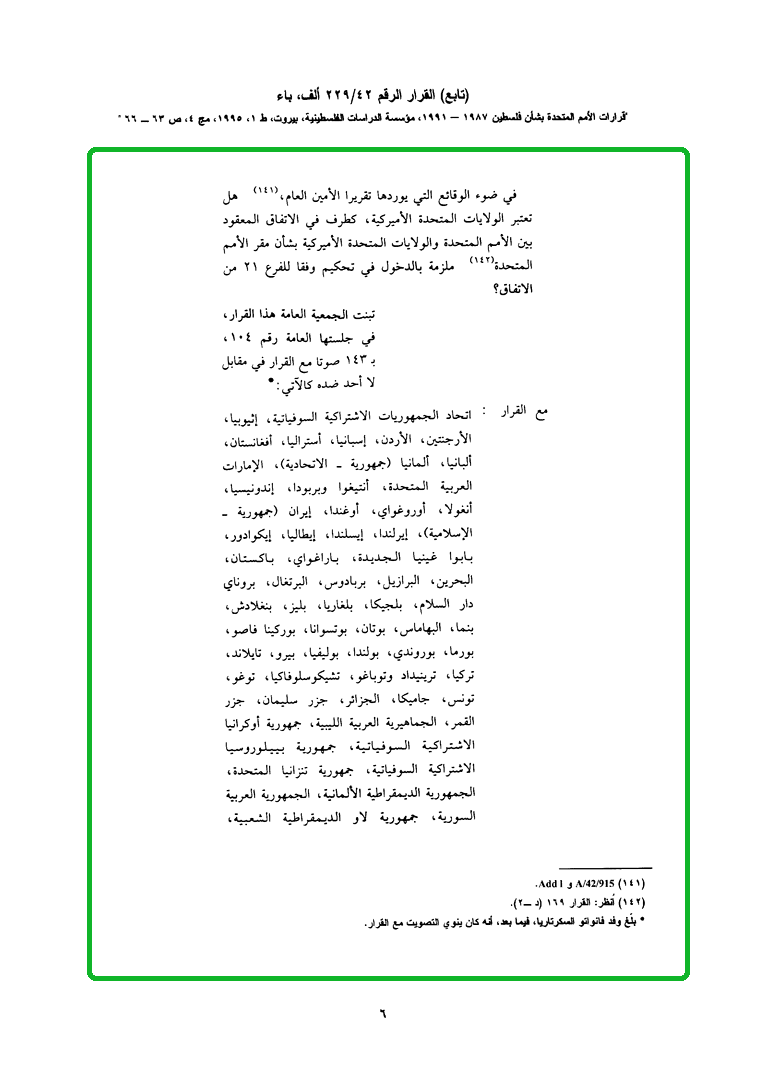 (تابع) القرار الرقم ٢٢٩/٤٢ ألف، باء
"قرارات الأمم المتحدة بشأن فلسطين ١٩٨٧ – ١٩٩١، مؤسسة الدراسات الفلسطينية، بيروت، ط ١، ١٩٩٥، مج ٤، ص ٦٣ – ٦٦"
في ضوء الوقائع التي يوردها تقريرا الأمين العام،(١٤١) هل
تعتبر الولايات المتحدة الأميركية، كطرف في الاتفاق المعقود
بين الأمم المتحدة والولايات المتحدة الأميركية بشأن مقر الأمم
المتحدة(١٤٢) ملزمة بالدخول في تحكيم وفقا للفرع ٢١ من
الاتفاق؟
تبنت الجمعية العامة هذا القرار،
في جلستها العامة رقم ١٠٤،
بـ ١٤٣ صوتا مع القرار في مقابل
لا أحد ضده كالآتي:*
مع القرار : اتحاد الجمهوريات الاشتراكية السوفياتية، إثيوبيا،
الأرجنتين، الأردن، إسبانيا، أستراليا، أفغانستان،
ألبانيا، ألمانيا (جمهورية ـ الاتحادية)، الإمارات
العربية المتحدة، أنتيغوا وبربودا، إندونيسيا،
أنغولا، أوروغواي، أوغندا، إيران (جمهورية ـ
الإسلامية)، إيرلندا، إيسلندا، إيطاليا، إيكوادور،
بابوا غينيا الجديدة، باراغواي، باكستان،
البحرين، البرازيل، بربادوس، البرتغال، بروناي
دار السلام، بلجيكا، بلغاريا، بليز، بنغلادش،
بنما، البهاماس، بوتان، بوتسوانا، بوركينا فاصو،
بورما، بوروندي، بولندا، بوليفيا، بيرو، تايلاند،
تركيا، ترينيداد وتوباغو، تشيكوسلوفاكيا، توغو،
تونس، جاميكا، الجزائر، جزر سليمان، جزر
القمر، الجماهيرية العربية الليبية، جمهورية أوكرانيا
الاشتراكية السوفياتية، جمهورية بييلوروسيا
الاشتراكية السوفياتية، جمهورية تنزانيا المتحدة،
الجمهورية الديمقراطية الألمانية، الجمهورية العربية
السورية، جمهورية لاو الديمقراطية الشعبية،
(١٤١) A/42/915 و Add 1.
(١٤٢) أنظر: القرار ١٦٩ (د ــ٢).
* بلّغ وفد فانواتو السكرتاريا، فيما بعد، أنه كان ينوي التصويت مع القرار.
٦